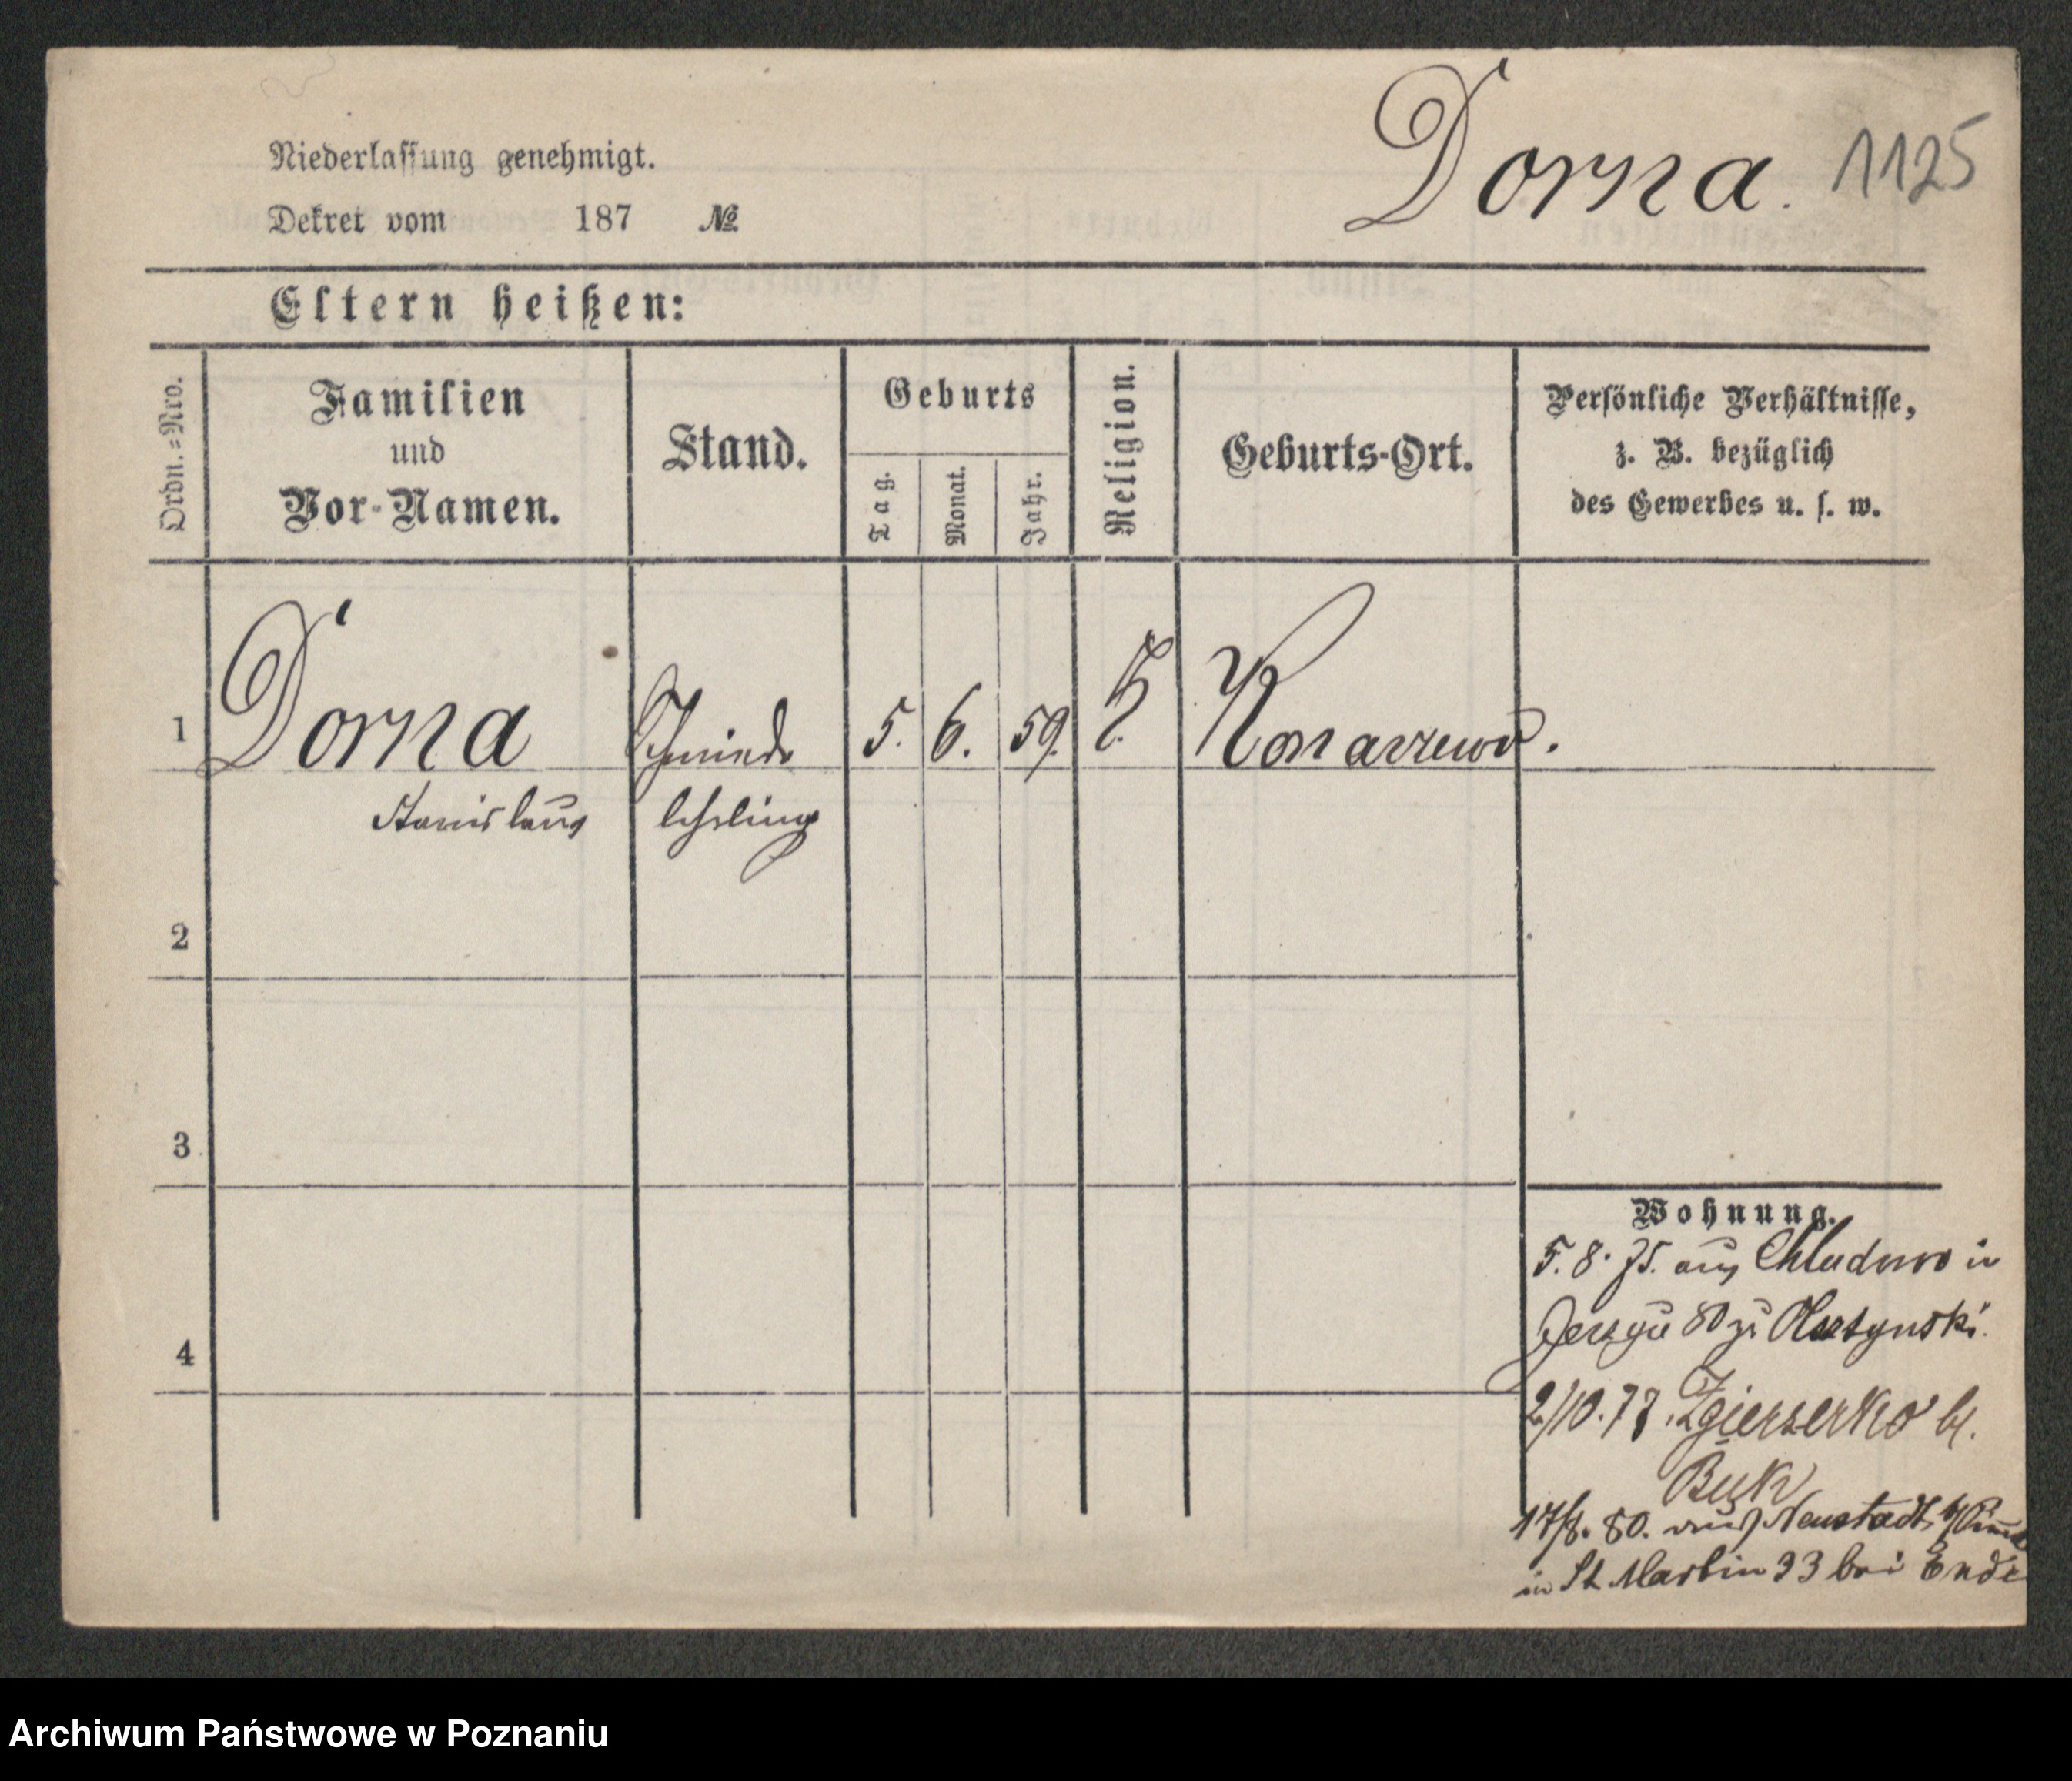 Dorna. 1125
Niederlassung genehmigt.
Dekret vom 187 №
Eltern heißen:
Ordn.=Nro.
Familien
und
Vor-Namen.
Stand.
Geburts
Tag.
Monat.
Jahr.
Religion.
Geburts-Ort.
Persönliche Verhältnisse,
z. B. bezüglich
des Gewerbes u. s. w.
1 Dorna Schmiede 5. 6. 59. K.
Stanislaus lehrling
2
3
4
Wohnung.
5. 8. 75. aus Chludowo in
80 zu
2/10. 77.
Buk
17/8. 80. aus Neustadt b/
in St Martin 33 bei Ende
Archiwum Państwowe w Poznaniu